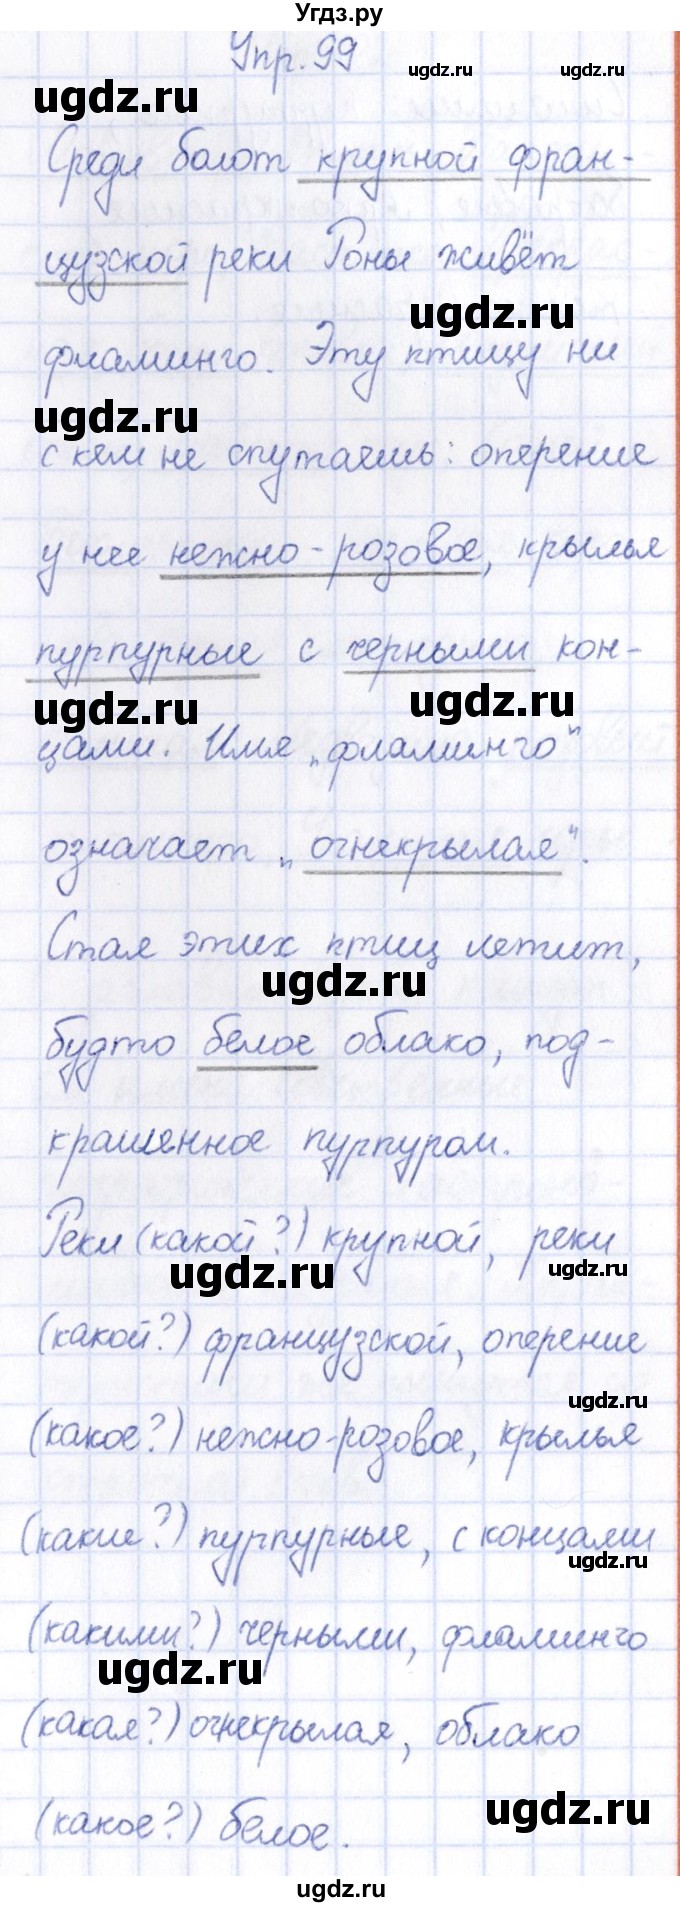 Угдз.ру
Упр. 99
ugdz.ru
ugdz.ru
ugdz.ru
Среди болот крупной фран-
цузской реки Роны живёт
ugdz.ru
фламинго. Эту птицу ни
ugdz.ru
с кем не спутаешь: оперение
у нее нежно-розовое, крылья
пурпурные с черными кон-
ugdz.ru
ugdz.ru
цами. Имя „фламинго“
означает „огнекрылая“.
Стая этих птиц летит,
ugdz.ru
будто белое облако, под-
крашенное пурпуром.
Реки (какой?) крупной, реки
ugdz.ru
ugdz.ru
(какой?) французской, оперение
ugdz.ru
(какое?) нежно-розовое, крылья
(какие?) пурпурные, с концами
ugdz.ru
(какими?) черными, фламинго
ugdz.ru
(какая?) огнекрылая, облако
ugdz.ru
(какое?) белое.
ugdz.ru